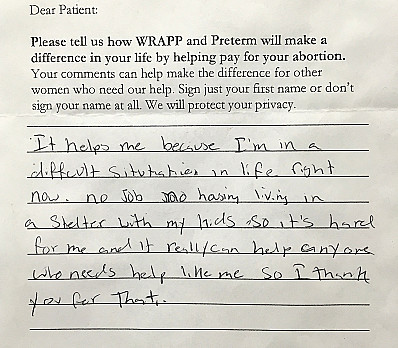 Dear Patient:
Please tell us how WRAPP and Preterm will make a
difference in your life by helping pay for your abortion.
Your comments can help make the difference for other
women who need our help. Sign just your first name or don't
sign your name at all. We will protect your privacy.
It helps me because I'm in a
difficult in life right
now. no Job no housing living in
a Shelter with my kids so it's hard
for me and it really can help anyone
who needs help like me so I thank
you for that.